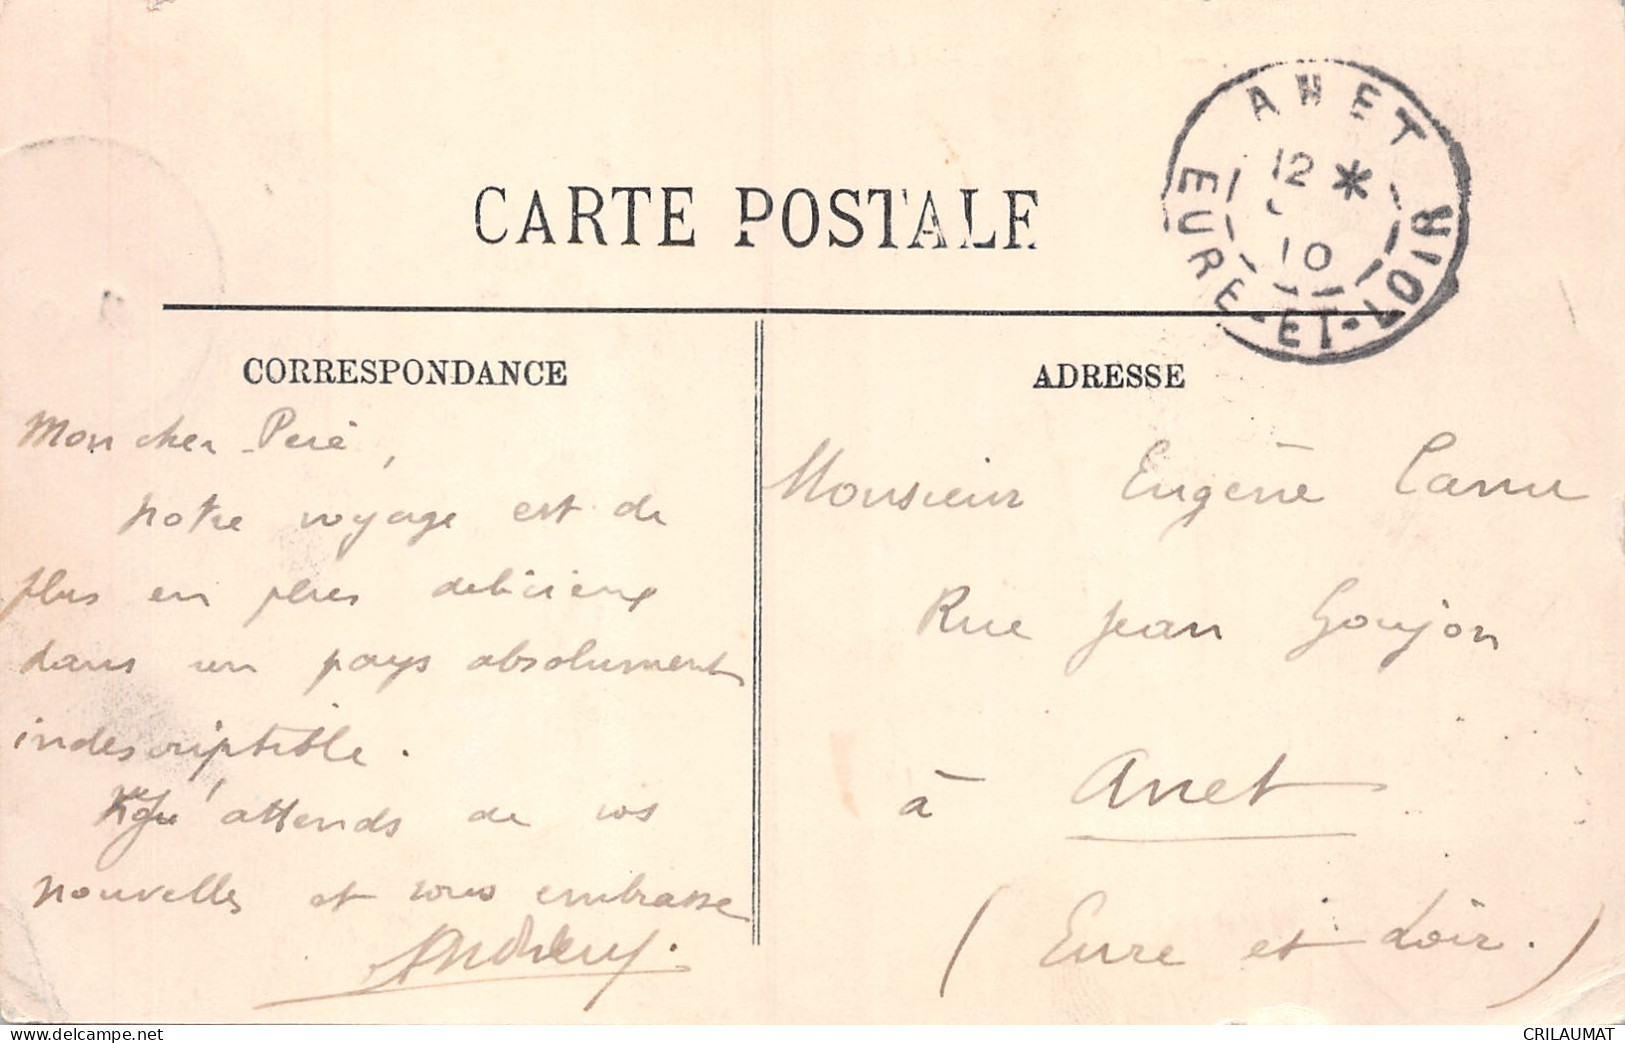 CARTE POSTALE
ANET
12 *
10
EURE-ET-LOIR
CORRESPONDANCE
Mon cher Père,
notre voyage est de
plus en plus delicieux
dans un pays absolument
indescriptible.
J'attends de vos
nouvelles et vous embrasse
ADRESSE
Monsieur Eugène Canu
Rue Jean Goujon
à Anet
(Eure et Loir.)
www.delcampe.net
CRILAUMAT